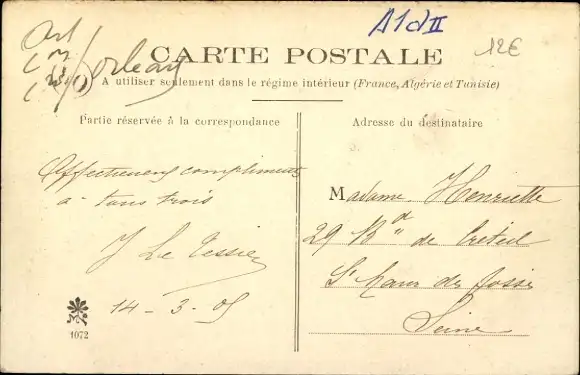 A1dII
12€
Orléans
CARTE POSTALE
A utiliser seulement dans le régime intérieur (France, Algérie et Tunisie)
Partie réservée à la correspondance
Affectueux compliments
à tous trois
J Le Tessier
14-3-05
M
1072
Adresse du destinataire
Madame Henriette
29 Bd de Créteil
St Maur des Fossés
Seine